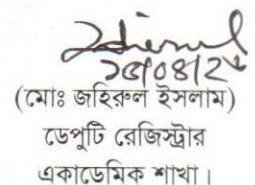 (মোঃ জহিরুল ইসলাম)
ডেপুটি রেজিস্ট্রার
একাডেমিক শাখা।